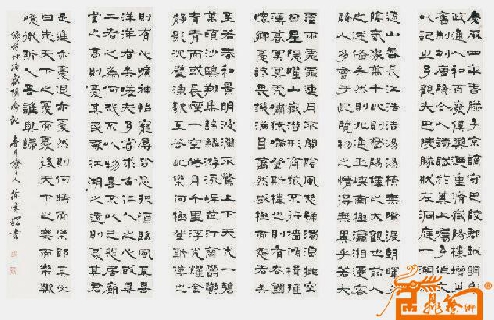 慶曆四年春滕子京謫守巴陵郡越明年
政通人和百廢具興乃重修岳陽樓增其
舊制刻唐賢今人詩賦於其上屬予作文
以記之予觀夫巴陵勝狀在洞庭一湖銜
遠山吞長江浩浩湯湯橫無際涯朝暉夕
陰氣象萬千此則岳陽樓之大觀也前人
之述備矣然則北通巫峽南極瀟湘遷客
騷人多會於此覽物之情得無異乎若夫
霪雨霏霏連月不開陰風怒號濁浪排空
日星隱耀山岳潛形商旅不行檣傾楫摧
薄暮冥冥虎嘯猿啼登斯樓也則有去國
懷鄉憂讒畏譏滿目蕭然感極而悲者矣
至若春和景明波瀾不驚上下天光一碧
萬頃沙鷗翔集錦鱗游泳岸芷汀蘭郁郁
青青而或長煙一空皓月千里浮光躍金
靜影沉璧漁歌互答此樂何極登斯樓也
則有心曠神怡寵辱偕忘把酒臨風其喜
洋洋者矣嗟夫予嘗求古仁人之心或異
二者之為何哉不以物喜不以己悲居廟
堂之高則憂其民處江湖之遠則憂其君
是進亦憂退亦憂然則何時而樂耶其必
曰先天下之憂而憂後天下之樂而樂歟
噫微斯人吾誰與歸